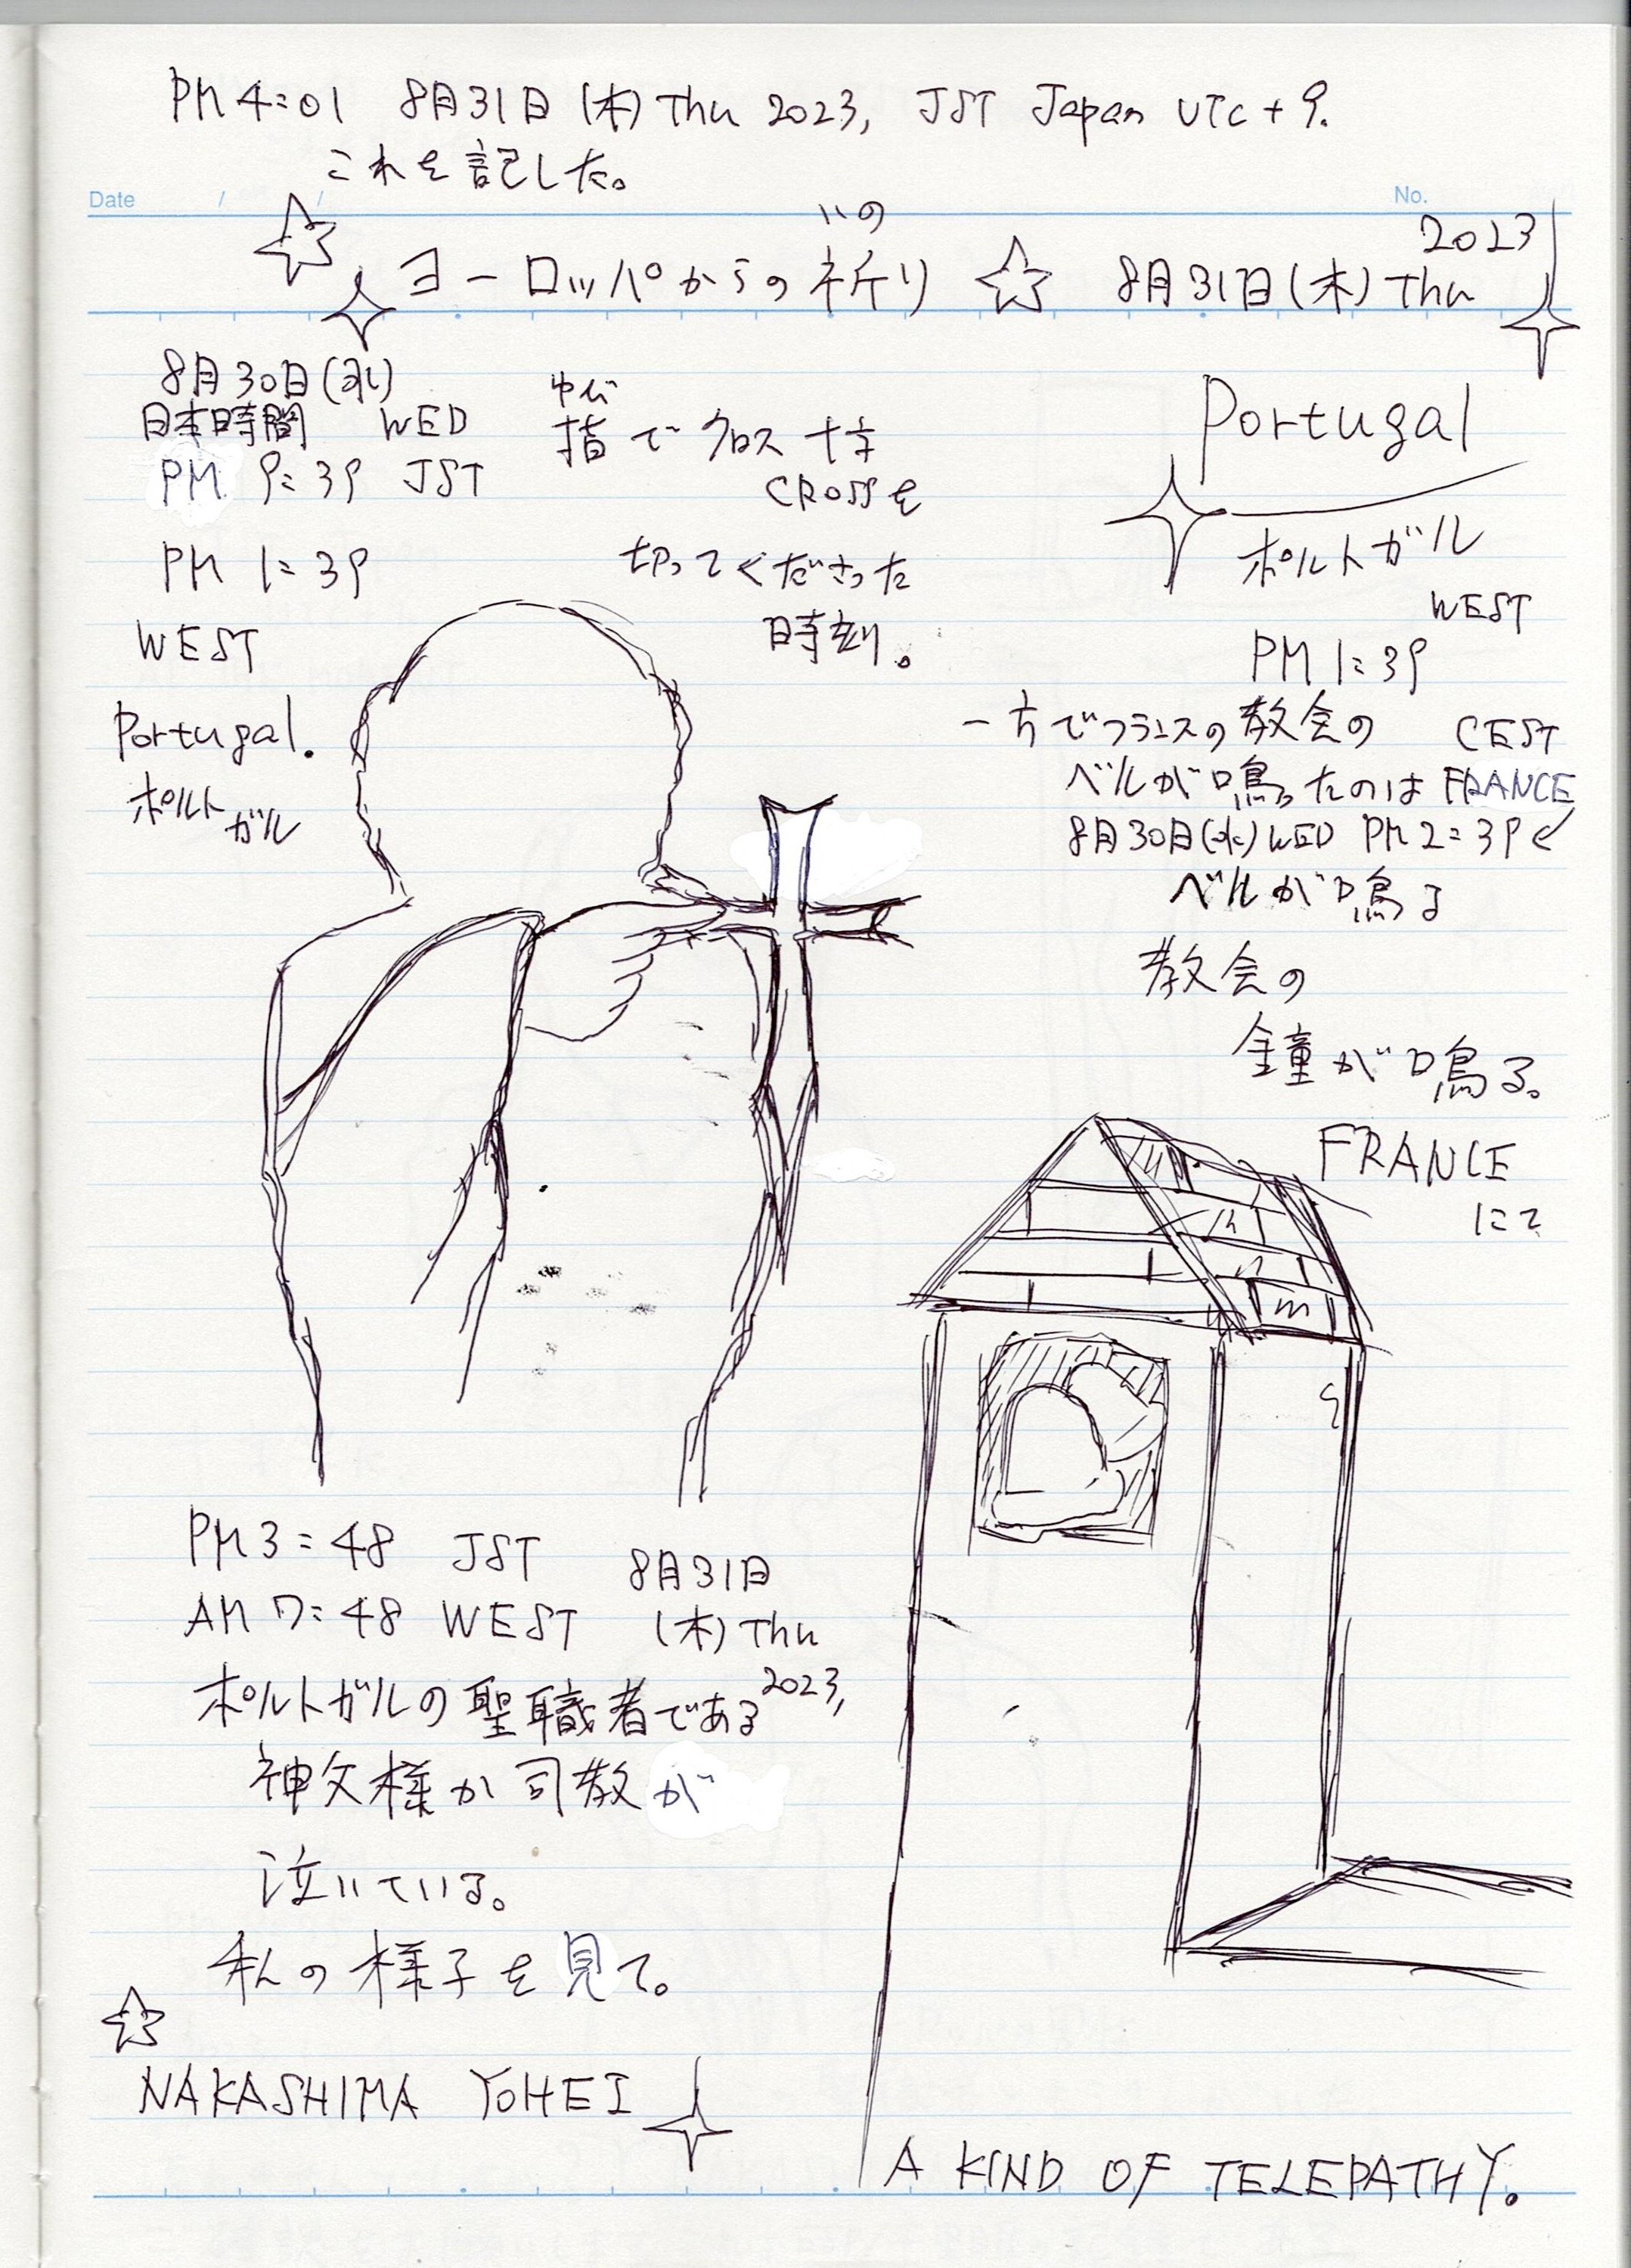 PM 4:01 8月31日(木) Thu 2023, JST Japan UTC+9.
これを記した。
Date / /
No.
いの
ヨーロッパからの祈り 8月31日(木) Thu 2023
8月30日(水)
日本時間 WED
PM 9:39 JST
PM 1:39
WEST
Portugal.
ポルト
ガル
ゆび
指でクロス十字
CROSSを
切ってくださった
時刻。
Portugal
ポルトガル
WEST
PM 1:39
一方でフランスの教会の CEST
ベルが鳴ったのは FRANCE
8月30日(水) WED PM 2:39
ベルが鳴る
教会の
鐘が鳴る。
FRANCE
にて
PM 3:48 JST 8月31日
AM 7:48 WEST (木) Thu
2023,
ポルトガルの聖職者である
神父様か司教が
泣いている。
私の様子を見て。
NAKASHIMA YOHEI
A KIND OF TELEPATHY.